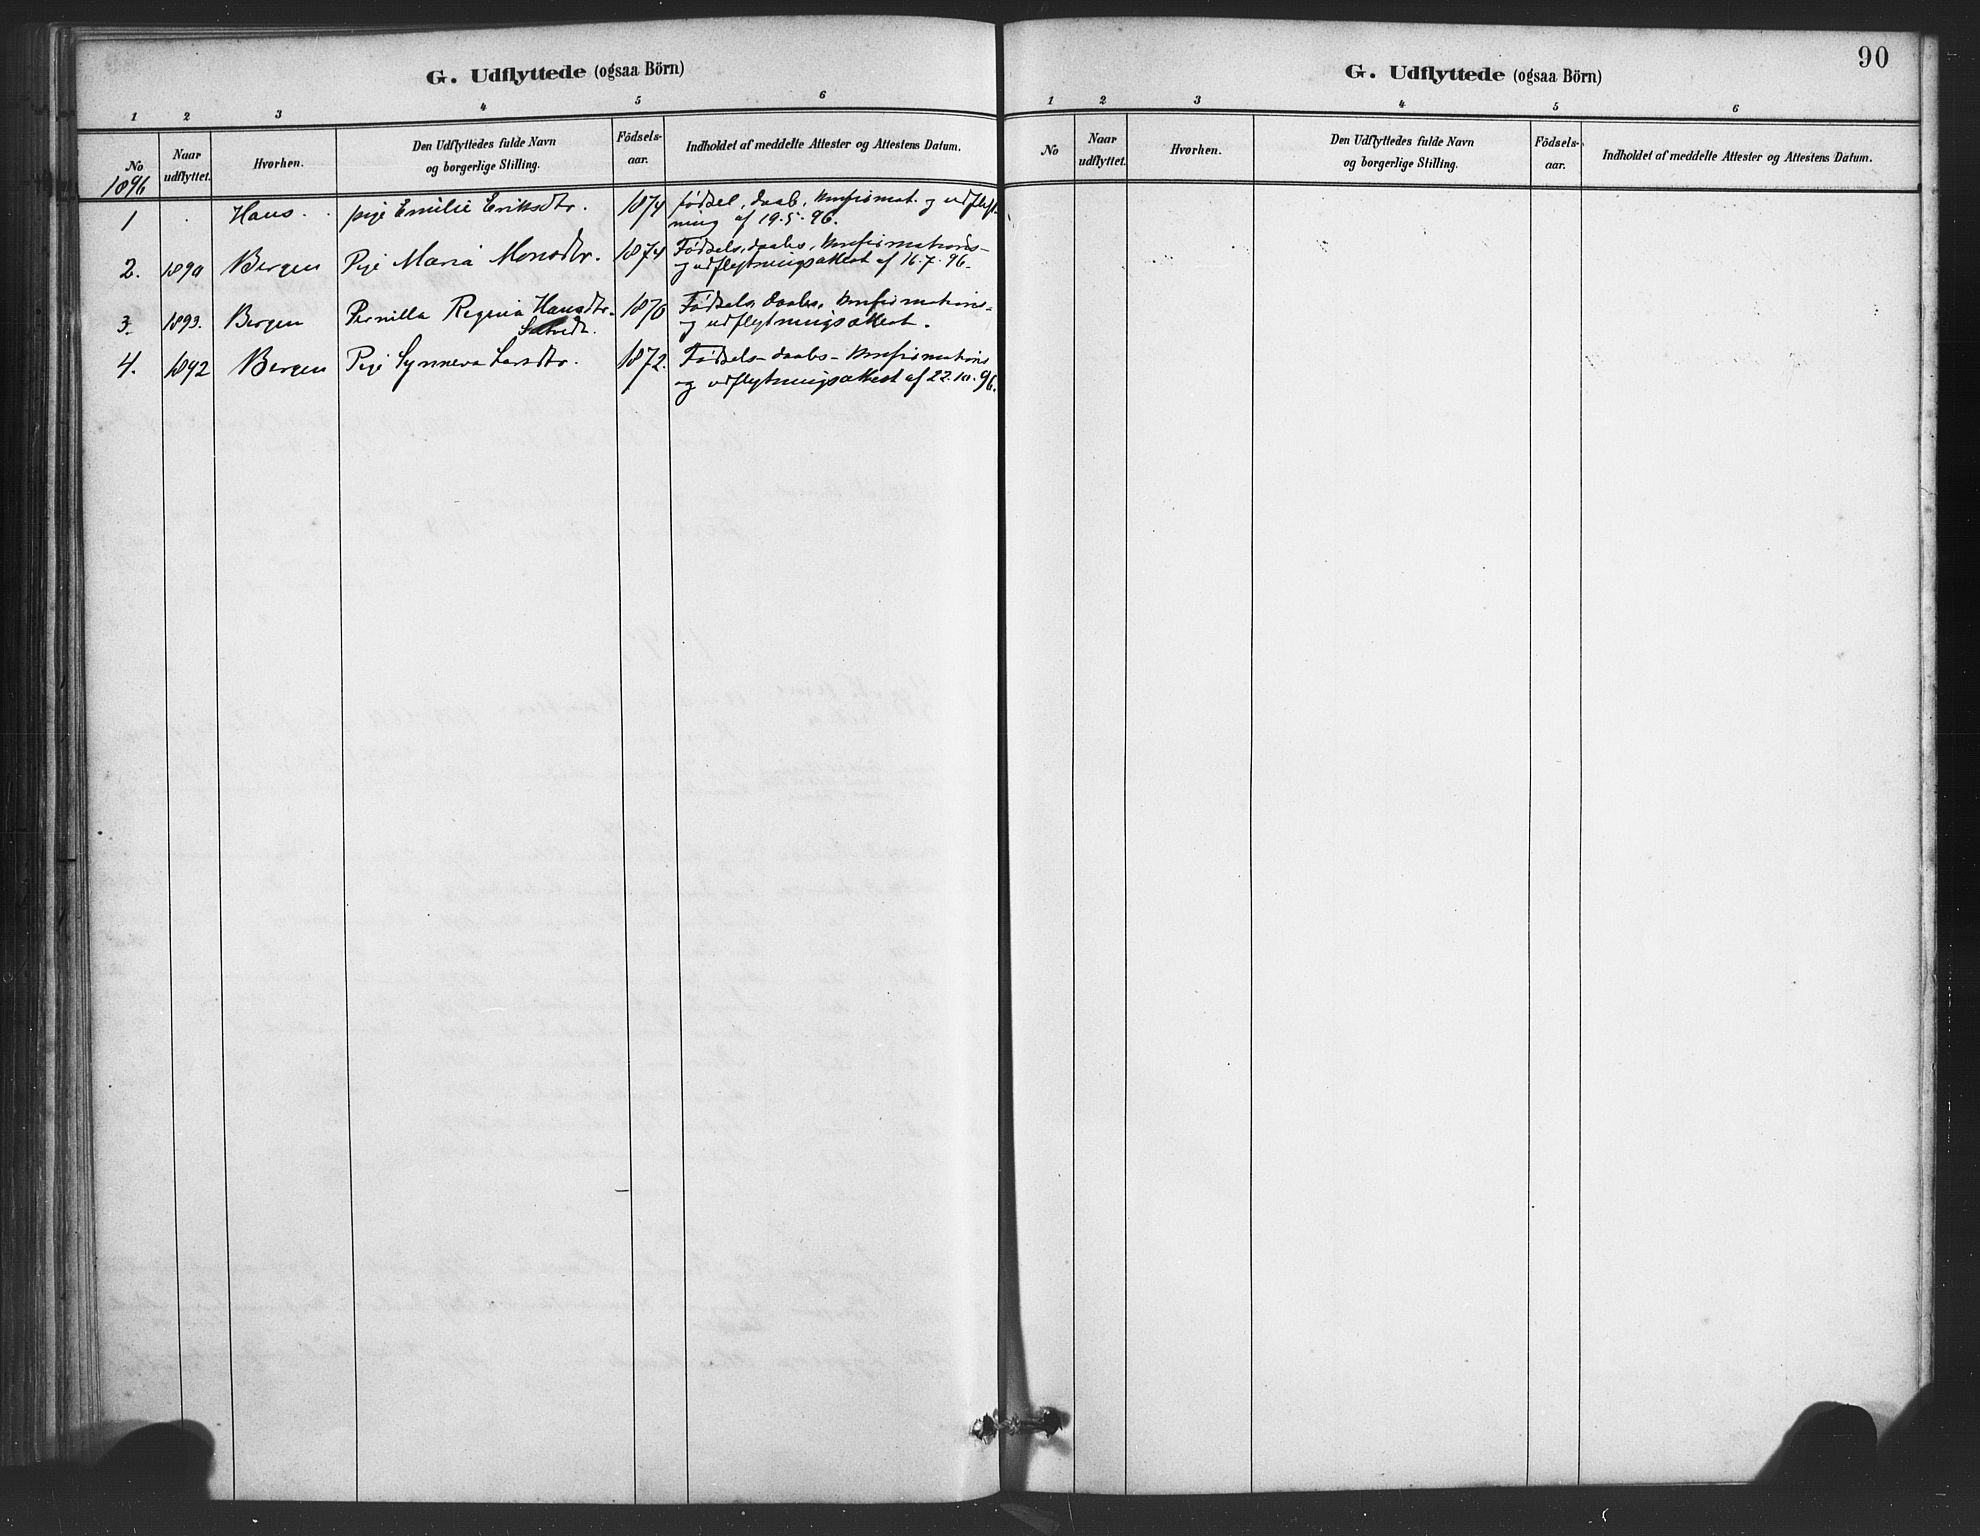 G. Udflyttede (ogsaa Börn)
1 2 3 4 5 6
No
Naar udflyttet.
Hvorhen.
Den Udflyttedes fulde Navn og borgerlige Stilling.
Födsels-aar.
Indholdet af meddelte Attester og Attestens Datum.
1896
1 . Haus . pige Emilie Eriksdtr. 1874 fødsel, daab, konfirmat. og udflyt-
ning af 19.5.96.
2. 1890 Bergen Pige Maria Monsdtr. 1874 Fødsels, daabs, konfirmations-
og udflytningsattest af 16.7.96.
3. 1893. Bergen Pernilla Regina Hansdtr. 1876 Fødsels, daabs, konfirmations-
og udflytningsattest.
4. 1892 Bergen Pige Synneva Larsdtr. 1872. Fødsels- daabs- konfirmations
og udflytningsattest af 22.10.96.
90
G. Udflyttede (ogsaa Börn)
1 2 3 4 5 6
No
Naar udflyttet.
Hvorhen.
Den Udflyttedes fulde Navn og borgerlige Stilling.
Födsels-aar.
Indholdet af meddelte Attester og Attestens Datum.